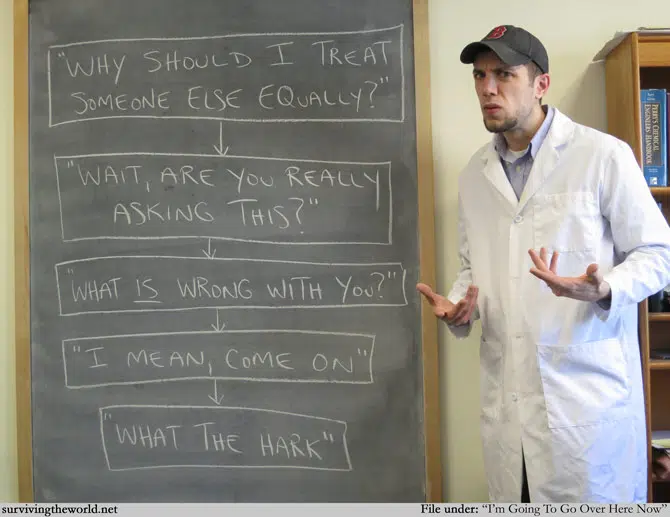 "WHY SHOULD I TREAT
SOMEONE ELSE EQUALLY?"
"WAIT, ARE YOU REALLY
ASKING THIS?"
"WHAT IS WRONG WITH YOU?"
"I MEAN, COME ON"
"WHAT THE HARK"
B
PERRY'S CHEMICAL
ENGINEERS' HANDBOOK
survivingtheworld.net
File under: "I'm Going To Go Over Here Now"